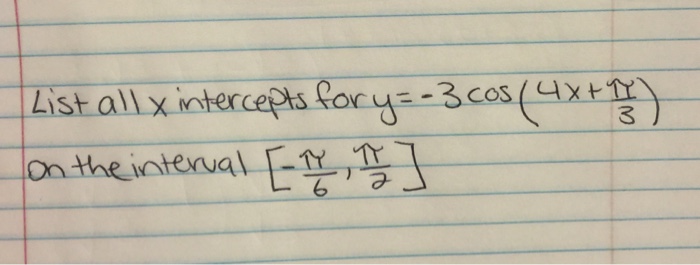 List all x intercepts for y=-3cos(4x+π/3)
on the interval [-π/6, π/2]